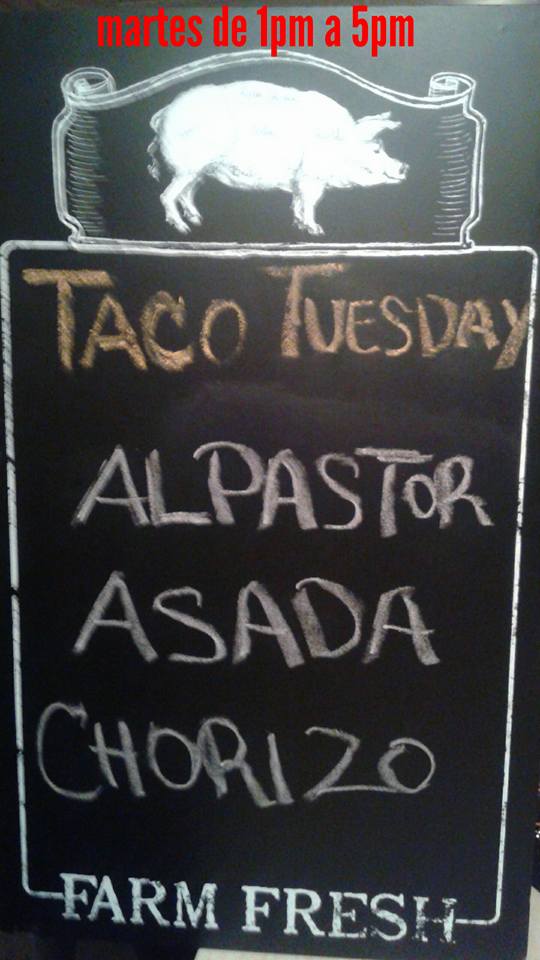 martes de 1pm a 5pm
TACO TUESDAY
ALPASTOR
ASADA
CHORIZO
FARM FRESH